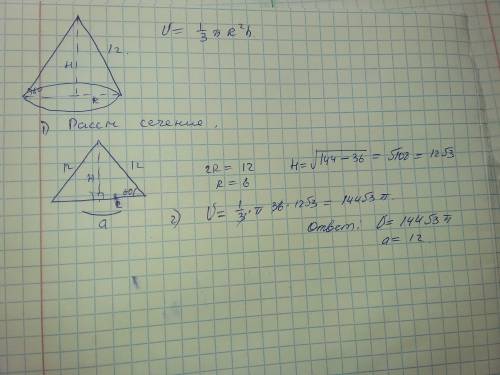 V = 1/3 π R²h
12
H
60°
R
1) Рассм сечение.
12 12
H
60°
R
a
2R = 12
R = 6
H = √144 - 36 = √108 = 12√3
2) V = 1/3 · π 36 · 12√3 = 144√3 π
Ответ: V = 144√3 π
a = 12